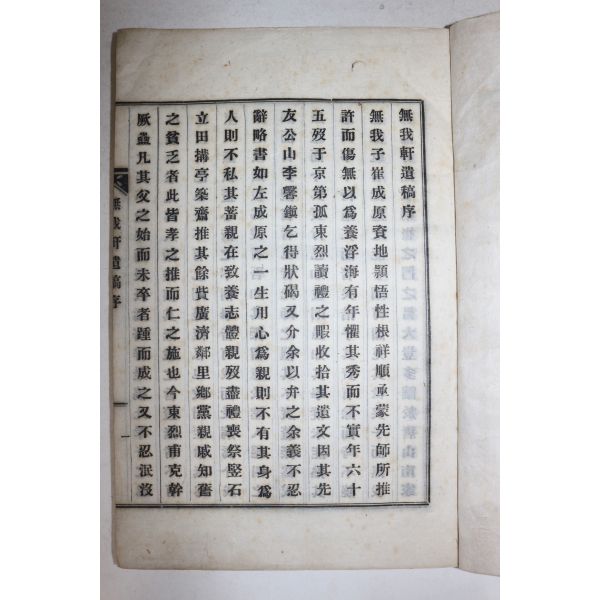 無我軒遺稿序
無我子崔成原資地穎悟性根祥順承蒙先師所推
許而傷無以爲養浮海有年懼其秀而不實年六十
五歿于京第孤東烈讀禮之暇收拾其遺文因其先
友公山李馨鎭乞得狀碣又介余以弁之余義不忍
辭略書如左成原之一生用心爲親則不有其身爲
人則不私其蓄親在致養志體親歿盡禮喪祭竪石
立田搆亭築齋推其餘貲廣濟鄰里鄉黨親戚知舊
之貧乏者此皆孝之推而仁之施也今東烈甫克幹
厥蠱凡其父之始而未卒者踵而成之又不忍泯沒
無我軒遺稿序
一